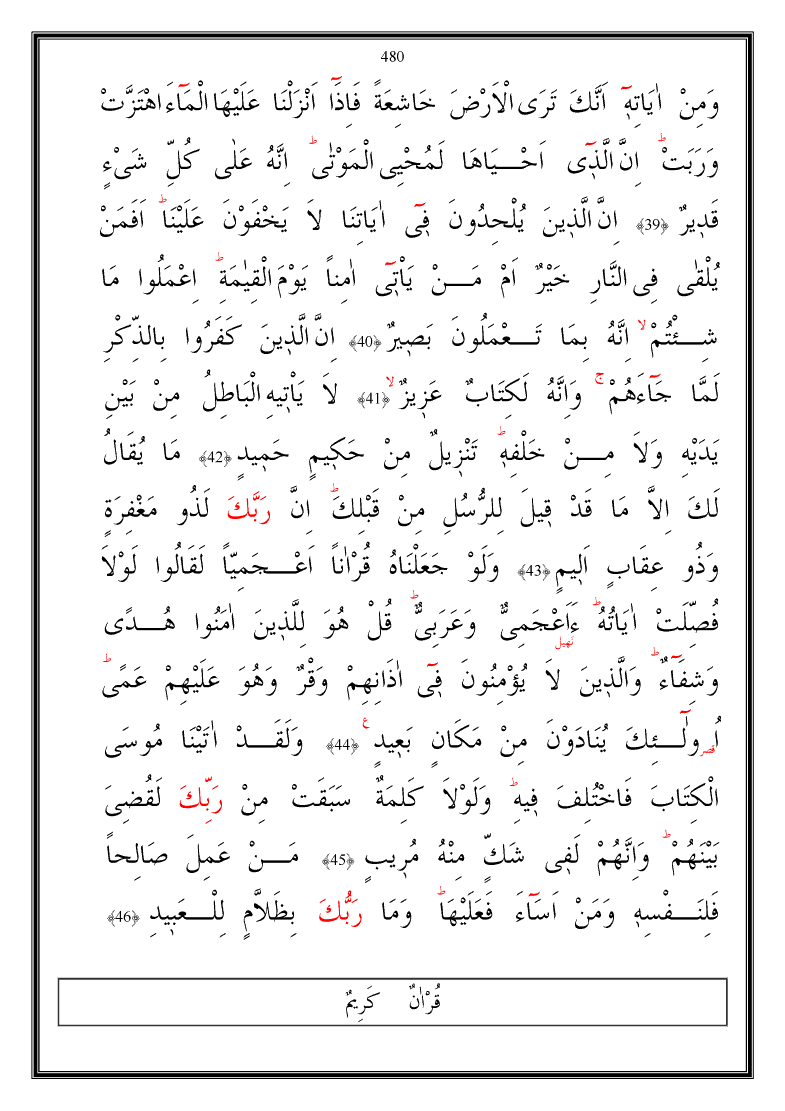 480
وَمِنْ اٰيَاتِه۪ٓ اَنَّكَ تَرَى الْاَرْضَ خَاشِعَةً فَاِذَٓا اَنْزَلْنَا عَلَيْهَا الْمَٓاءَ اهْتَزَّتْ
وَرَبَتْۜ اِنَّ الَّذ۪ٓى اَحْـــيَاهَا لَمُحْيِى الْمَوْتٰىۜ اِنَّهُ عَلٰى كُلِّ شَىْءٍ
قَد۪يرٌ ﴿39﴾ اِنَّ الَّذ۪ينَ يُلْحِدُونَ ف۪ٓى اٰيَاتِنَا لاَ يَخْفَوْنَ عَلَيْنَاۜ اَفَمَنْ
يُلْقٰى فِى النَّارِ خَيْرٌ اَمْ مَـــنْ يَاْت۪ٓى اٰمِناً يَوْمَ الْقِيٰمَةِۜ اِعْمَلُوا مَا
شِـــئْتُمْۙ اِنَّهُ بِمَا تَـــعْمَلُونَ بَص۪يرٌ ﴿40﴾ اِنَّ الَّذ۪ينَ كَفَرُوا بِالذِّكْرِ
لَمَّا جَٓاءَهُمْۚ وَاِنَّهُ لَكِتَابٌ عَز۪يزٌۙ ﴿41﴾ لاَ يَاْت۪يهِ الْبَاطِلُ مِنْ بَيْنِ
يَدَيْهِ وَلاَ مِـــنْ خَلْفِه۪ۜ تَنْز۪يلٌ مِنْ حَك۪يمٍ حَم۪يدٍ ﴿42﴾ مَا يُقَالُ
لَكَ اِلاَّ مَا قَدْ ق۪يلَ لِلرُّسُلِ مِنْ قَبْلِكَۜ اِنَّ رَبَّكَ لَذُو مَغْفِرَةٍ
وَذُو عِقَابٍ اَل۪يمٍ ﴿43﴾ وَلَوْ جَعَلْنَاهُ قُرْاٰناً اَعْـــجَمِيّاً لَقَالُوا لَوْلاَ
فُصِّلَتْ اٰيَاتُهُۜ ءَاَعْجَمِىٌّ وَعَرَبِىٌّۜ قُلْ هُوَ لِلَّذ۪ينَ اٰمَنُوا هُـــدًى
تسهيل
وَشِفَٓاءٌۜ وَالَّذ۪ينَ لاَ يُؤْمِنُونَ ف۪ٓى اٰذَانِهِمْ وَقْرٌ وَهُوَ عَلَيْهِمْ عَمًىۜ
اُو۬لٰٓـــئِكَ يُنَادَوْنَ مِنْ مَكَانٍ بَع۪يدٍ ع ﴿44﴾ وَلَقَـــدْ اٰتَيْنَا مُوسَى
قصر
الْكِتَابَ فَاخْتُلِفَ ف۪يهِۜ وَلَوْلاَ كَلِمَةٌ سَبَقَتْ مِنْ رَبِّكَ لَقُضِىَ
بَيْنَهُمْۜ وَاِنَّهُمْ لَف۪ى شَكٍّ مِنْهُ مُر۪يبٍ ﴿45﴾ مَـــنْ عَمِلَ صَالِحاً
فَلِنَـــفْسِه۪ وَمَنْ اَسَٓاءَ فَعَلَيْهَاۜ وَمَا رَبُّكَ بِظَلاَّمٍ لِلْـــعَب۪يدِ ﴿46﴾
قُرْاٰنٌ كَرِيمٌ